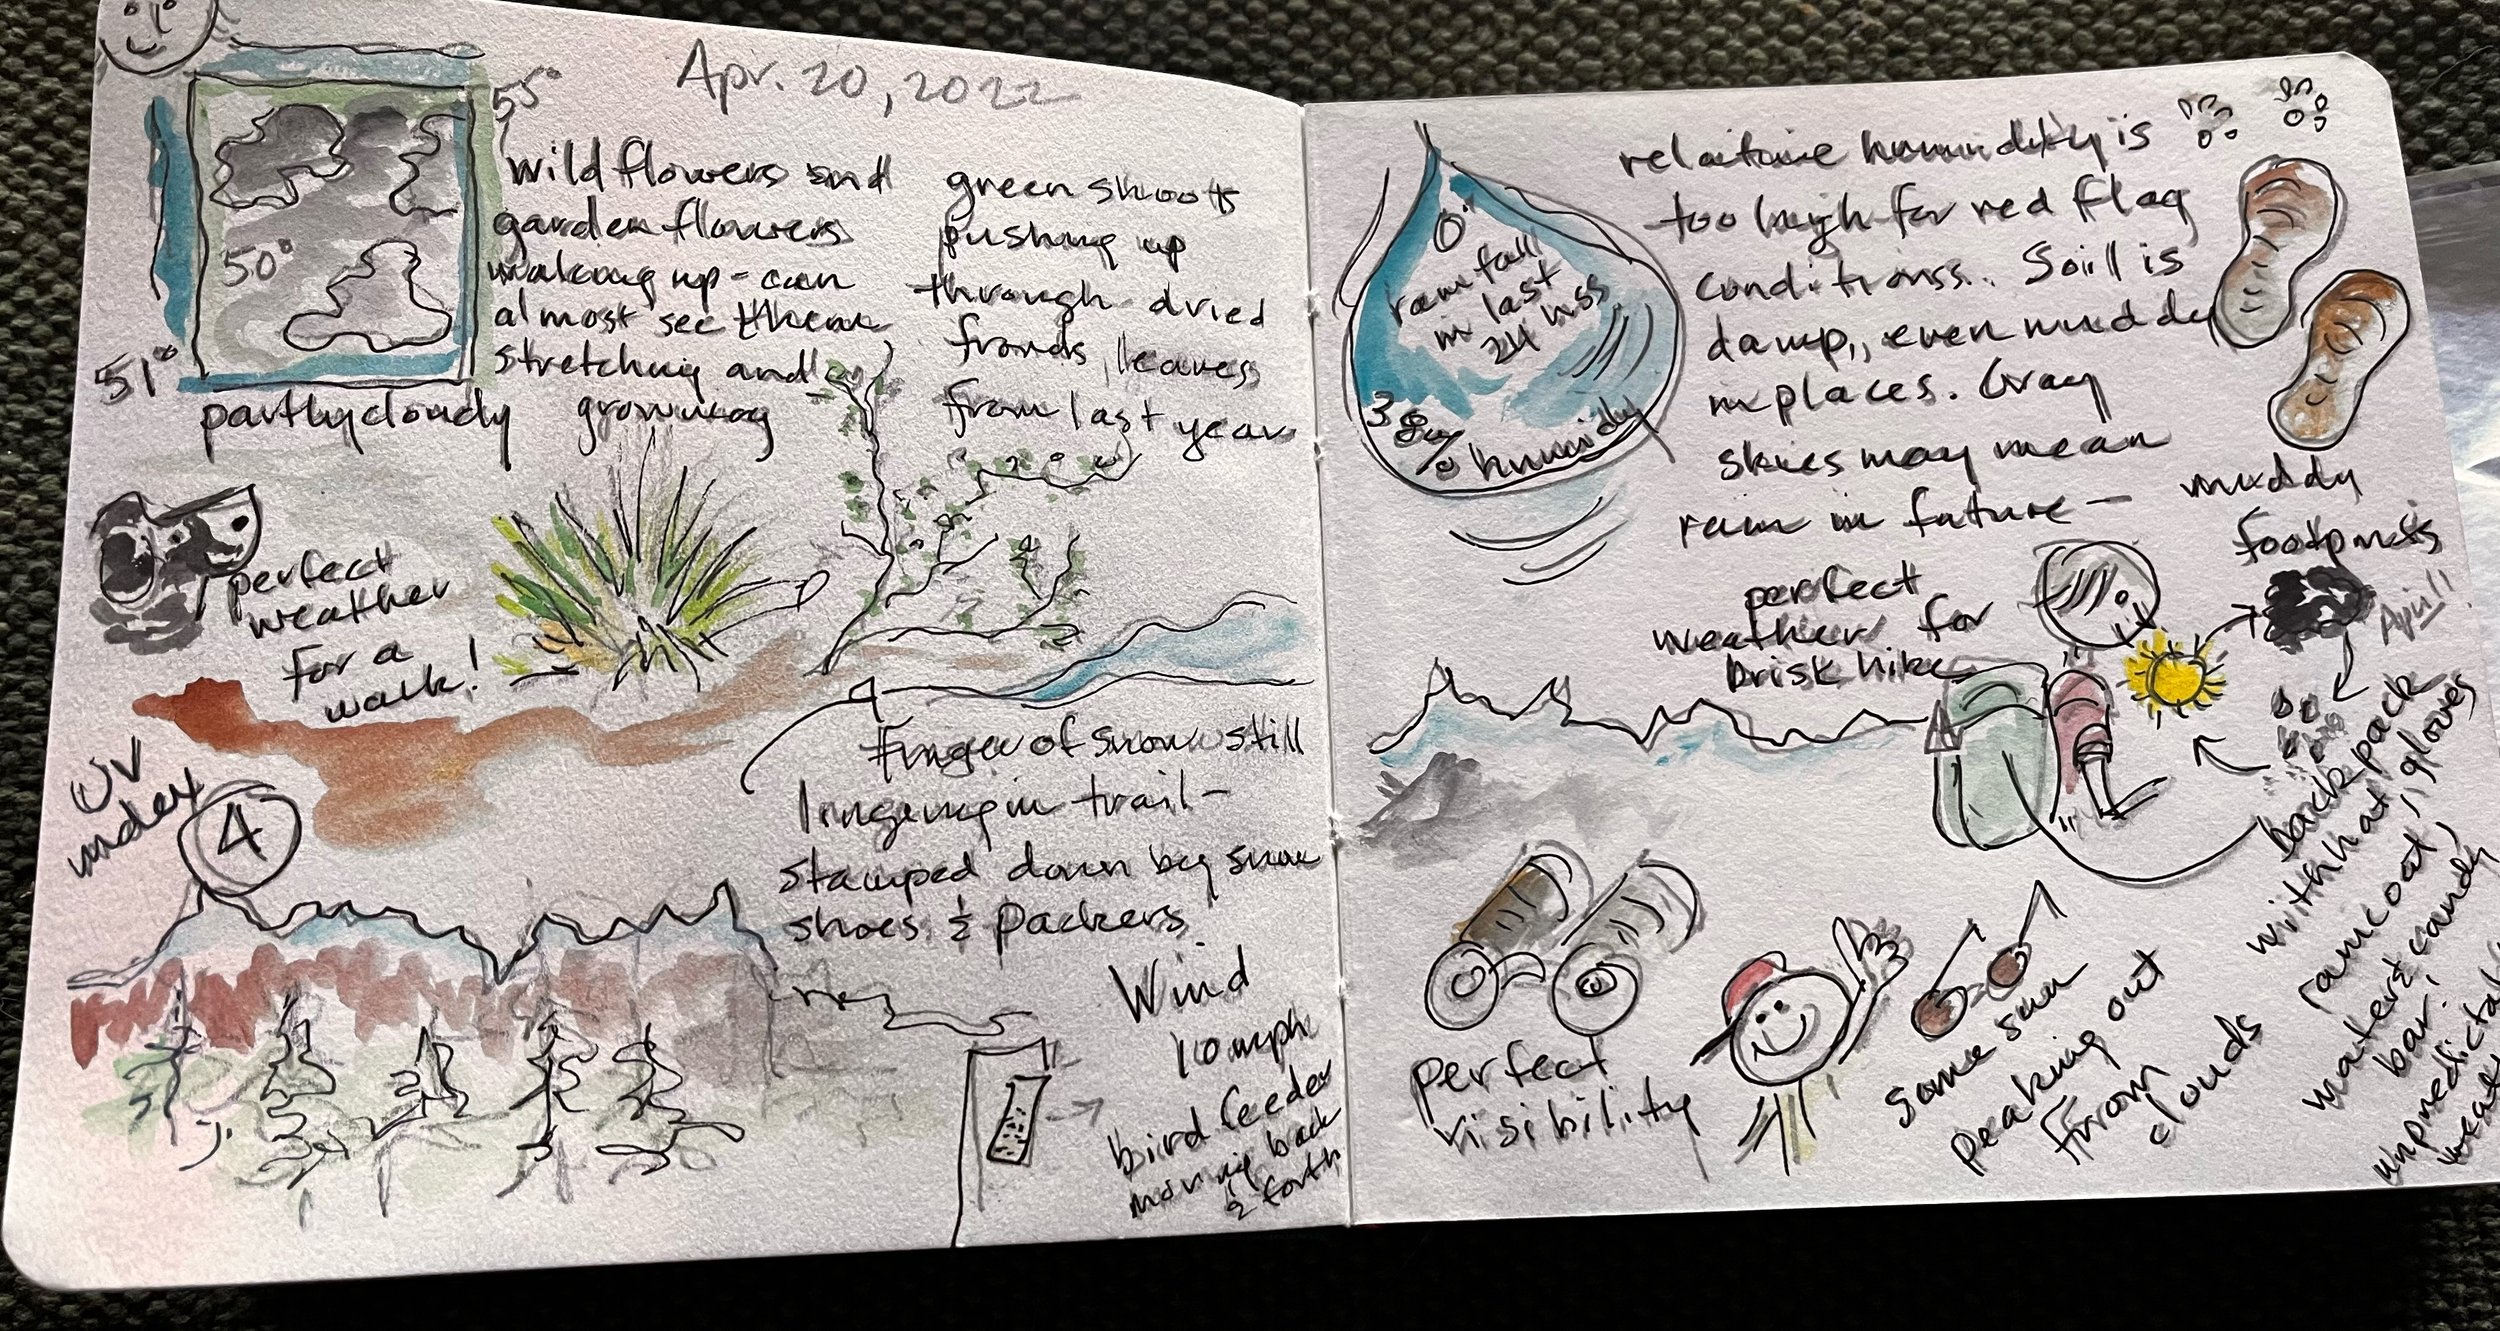 Apr. 20, 2022
55°
50°
51°
partly cloudy
wild flowers and
garden flowers
waking up - can
almost see them
stretching and
growing -
green shoots
pushing up
through dried
fronds, leaves
from last year
perfect
weather
for a
walk!
UV
index
4
Finger of snow still
lingering in trail -
stamped down by snow
shoes & packers
Wind
10 mph
bird feeder
moving back
& forth
0"
rain fall
in last
24 hrs
38%
humidity
relative humidity is
too high for red flag
conditions.. Soil is
damp,, even muddy
in places. Gray
skies may mean
rain in future -
muddy
footprints
perfect
weather for
brisk hike
April!
back pack
with hat, gloves
raincoat,
water & candy
bar;
perfect
visibility
some sun
peaking out
from
clouds